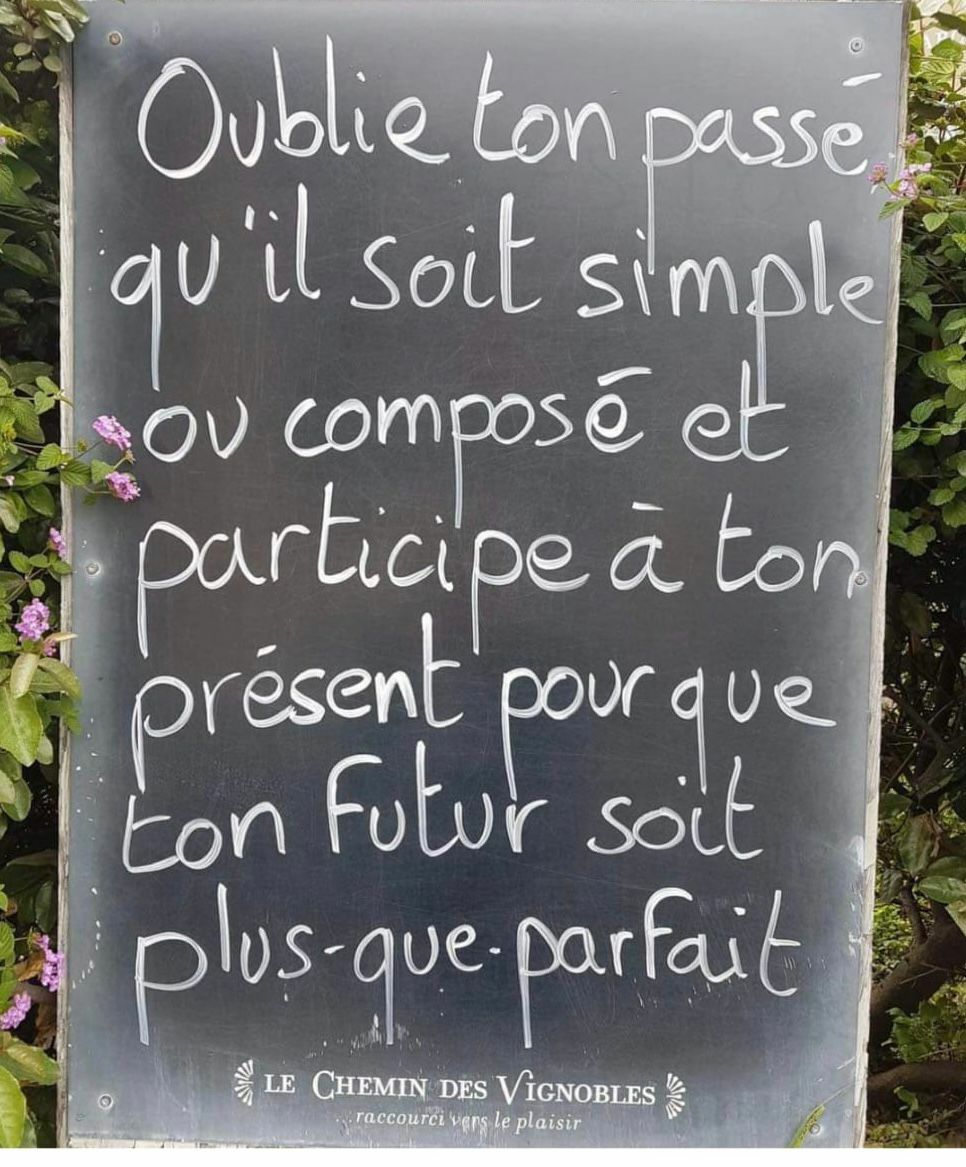 Oublie ton passé,
qu'il soit simple
ou composé et
participe à ton
présent pour que
ton futur soit
plus-que-parfait
LE CHEMIN DES VIGNOBLES
...raccourci vers le plaisir